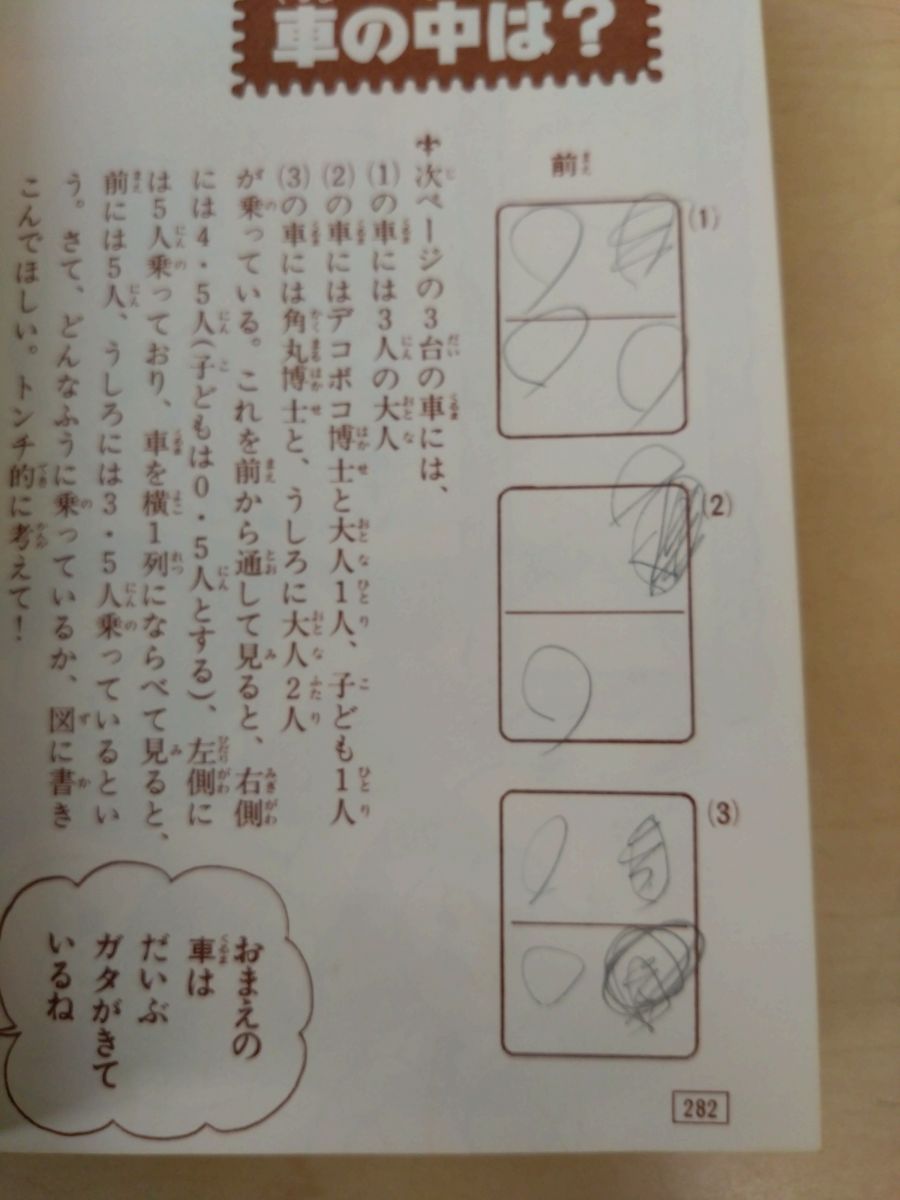 車の中は？
✢次ページの3台の車には、
(1)の車には3人の大人
(2)の車にはデコボコ博士と大人1人、子ども1人
(3)の車には角丸博士と、うしろに大人2人
が乗っている。これを前から通して見ると、右側
には4・5人(子どもは0・5人とする)、左側に
は5人乗っており、車を横1列にならべて見ると、
前には5人、うしろには3・5人乗っているとい
う。さて、どんなふうに乗っているか、図に書き
こんでほしい。トンチ的に考えて！
前
(1)
(2)
(3)
おまえの
車は
だいぶ
ガタがきて
いるね
282